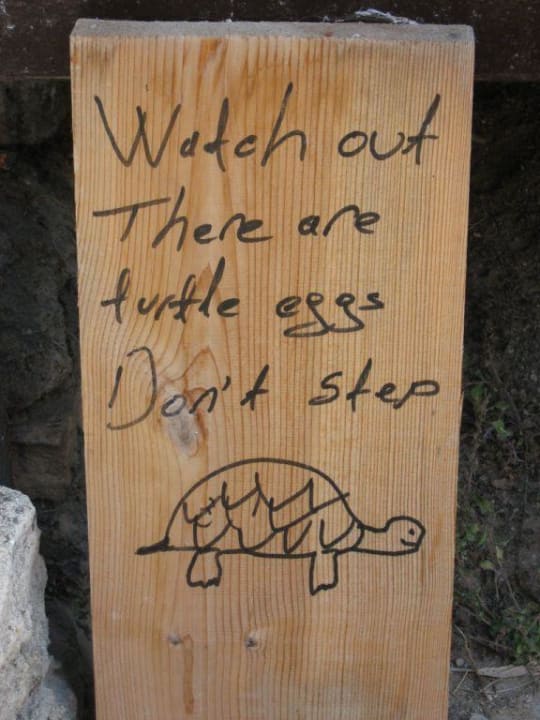 Watch out
There are
turtle eggs
Don't step